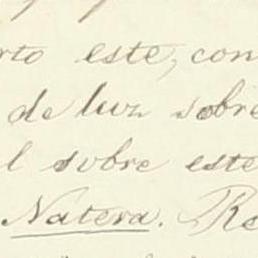 rto este, con
de luz sobre
l sobre este
Natera. Re